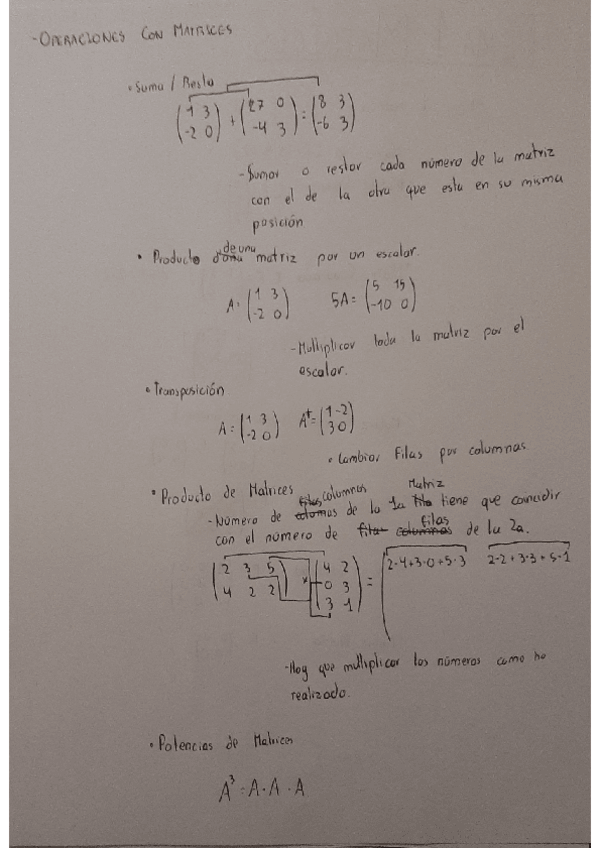 - OPERACIONES CON MATRICES
• Suma / Resta
(1 3 / -2 0) + (27 0 / -4 3) = (8 3 / -6 3)
- Sumar o restar cada número de la matriz
con el de la otra que esta en su misma
posición
• Producto de una matriz por un escalar.
A = (1 3 / -2 0) 5A = (5 15 / -10 0)
- Multiplicar toda la matriz por el
escalar.
• Transposición
A = (1 3 / -2 0) A^t = (1 -2 / 3 0)
• Cambiar Filas por columnas
• Producto de Matrices
- Número de columnas de la 1a Matriz tiene que coincidir
con el número de filas de la 2a.
(2 3 5 / 4 2 2) * (4 2 / 0 3 / 3 1) = (2·4+3·0+5·3 2·2+3·3+5·1
- Hay que multiplicar los números como he
realizado.
• Potencias de Matrices
A^3 = A·A·A